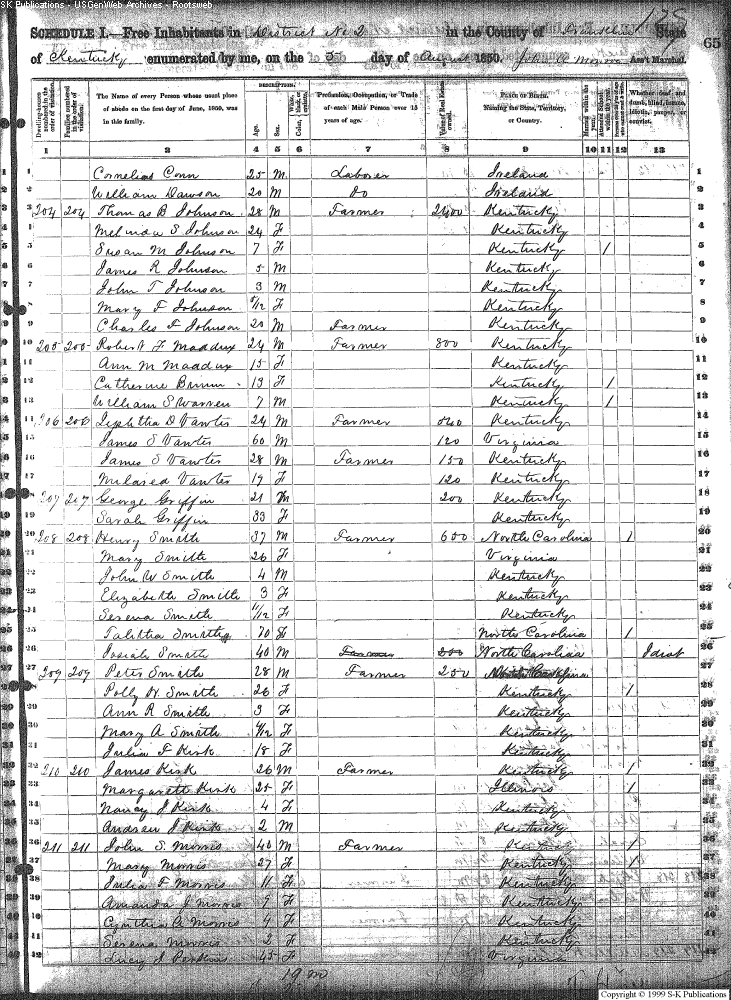 SK Publications - USGenWeb Archives - Rootsweb
SCHEDULE I.—Free Inhabitants in District No 2 in the County of Franklin State
of Kentucky enumerated by me, on the 5 day of August 1850. Ass't Marshal. 65
Dwelling-houses numbered in the order of visitation.
Families numbered in the order of visitation.
The Name of every Person whose usual place of abode on the first day of June, 1850, was in this family.
DESCRIPTION.
Age.
Sex.
Profession, Occupation, or Trade of each Male Person over 15 years of age.
Value of Real Estate owned.
PLACE OF BIRTH. Naming the State, Territory, or Country.
Whether deaf and dumb, blind, insane, idiotic, pauper, or convict.
1 2 3 4 5 6 7 8 9 10 11 12 13
1 Cornelius Conn 25 M Laborer Ireland 1
2 William Dawson 20 M Do Ireland 2
3 204 204 Thomas B Johnson 28 M Farmer 2400 Kentucky 3
4 Melinda S Johnson 24 F Kentucky 4
5 Susan M Johnson 7 F Kentucky 1 5
6 James R Johnson 5 M Kentucky 6
7 John T Johnson 3 M Kentucky 7
8 Mary F Johnson /12 F Kentucky 8
9 Charles F Johnson 20 M Farmer Kentucky 9
10 205 205 Robert F Maddux 24 M Farmer 800 Kentucky 10
11 Ann M Maddux 15 F Kentucky 11
12 Catherine 13 F Kentucky 1 12
13 William S Warren 7 M Kentucky 1 13
14 206 206 Jephtha D Vawter 24 M Farmer Kentucky 14
15 James S Vawter 60 M 120 Virginia 15
16 James S Vawter 28 M Farmer 150 Kentucky 16
17 Milared Vawter 19 F 120 Kentucky 17
18 207 207 George Griffin 21 M 200 Kentucky 18
19 Sarah Griffin 33 F Kentucky 19
20 208 208 Henry Smith 37 M Farmer 600 North Carolina 1 20
21 Mary Smith 26 F Virginia 21
22 John W Smith 4 M Kentucky 22
23 Elizabeth Smith 3 F Kentucky 23
24 Serena Smith 11/12 F Kentucky 24
25 Talitha Smith 70 F North Carolina 1 25
26 Josiah Smith 40 M Farmer North Carolina Idiot 26
27 209 209 Peter Smith 28 M Farmer 250 27
28 Polly H Smith 26 F Kentucky 1 28
29 Ann R Smith 3 F Kentucky 29
30 Mary A Smith /12 F Kentucky 30
31 Julia F Kirk 18 F Kentucky 31
32 210 210 James Kirk 26 M Farmer Kentucky 1 32
33 Margarett Kirk 25 F Illinois 1 33
34 Nancy J Kirk 4 F Kentucky 34
35 Andrew J Kirk 2 M Kentucky 35
36 211 211 John S. Morris 40 M Farmer Kentucky 1 36
37 Mary Morris 27 F Kentucky 1 37
38 Julia F Morris 11 F Kentucky 38
39 Amanda J Morris 9 F Kentucky 39
40 Cynthia A Morris 4 F Kentucky 40
41 Serena Morris 2 F Kentucky 41
42 Lucy J Perkins 45 F Virginia 42
Copyright © 1999 S-K Publications